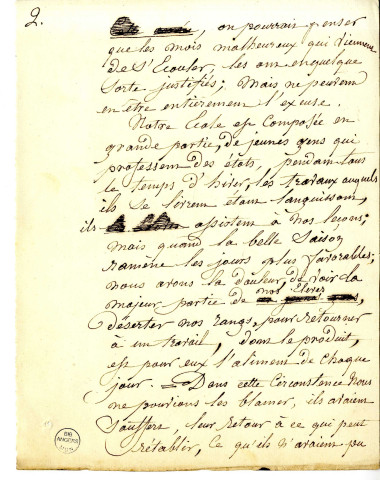 2.
, on pourrait penser
que les mois malheureux qui viennent
de s'écouler, les ont en quelque
sorte justifiés; mais ne peuvent
en être entièrement l'excuse.
Notre École est composée en
grande partie, de jeunes gens qui
professent des états, pendant tous
le temps d'hiver, les travaux auxquels
ils se livrent étant languissans,
ils assistent à nos leçons;
mais quand la belle saison
ramène les jours plus favorables;
nous avons la douleur, de voir la
majeur partie de nos Élèves
déserter nos rangs, pour retourner
à un travail, dont le produit,
est pour eux l'aliment de chaque
jour. Dans cette circonstance nous
ne pouvions les blâmer, ils avaient
souffert, leur retour à ce qui peut
rétablir, ce qu'ils n'avaient pu
BIB
ANGERS